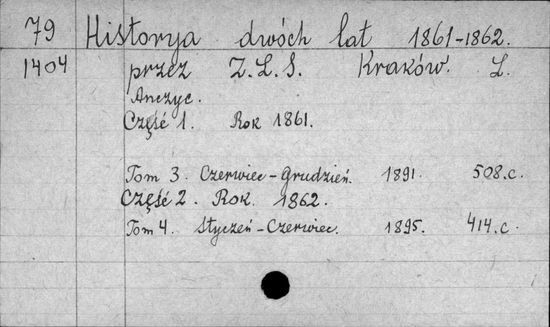 79 Historya dwóch lat 1861-1862.
1404 przez Z.L.S. Kraków. L.
Anczyc.
Część 1. Rok 1861.
Tom 3. Czerwiec-Grudzień. 1891. 508.c.
Część 2. Rok. 1862.
Tom 4. Styczeń-Czerwiec. 1895. 414.c.